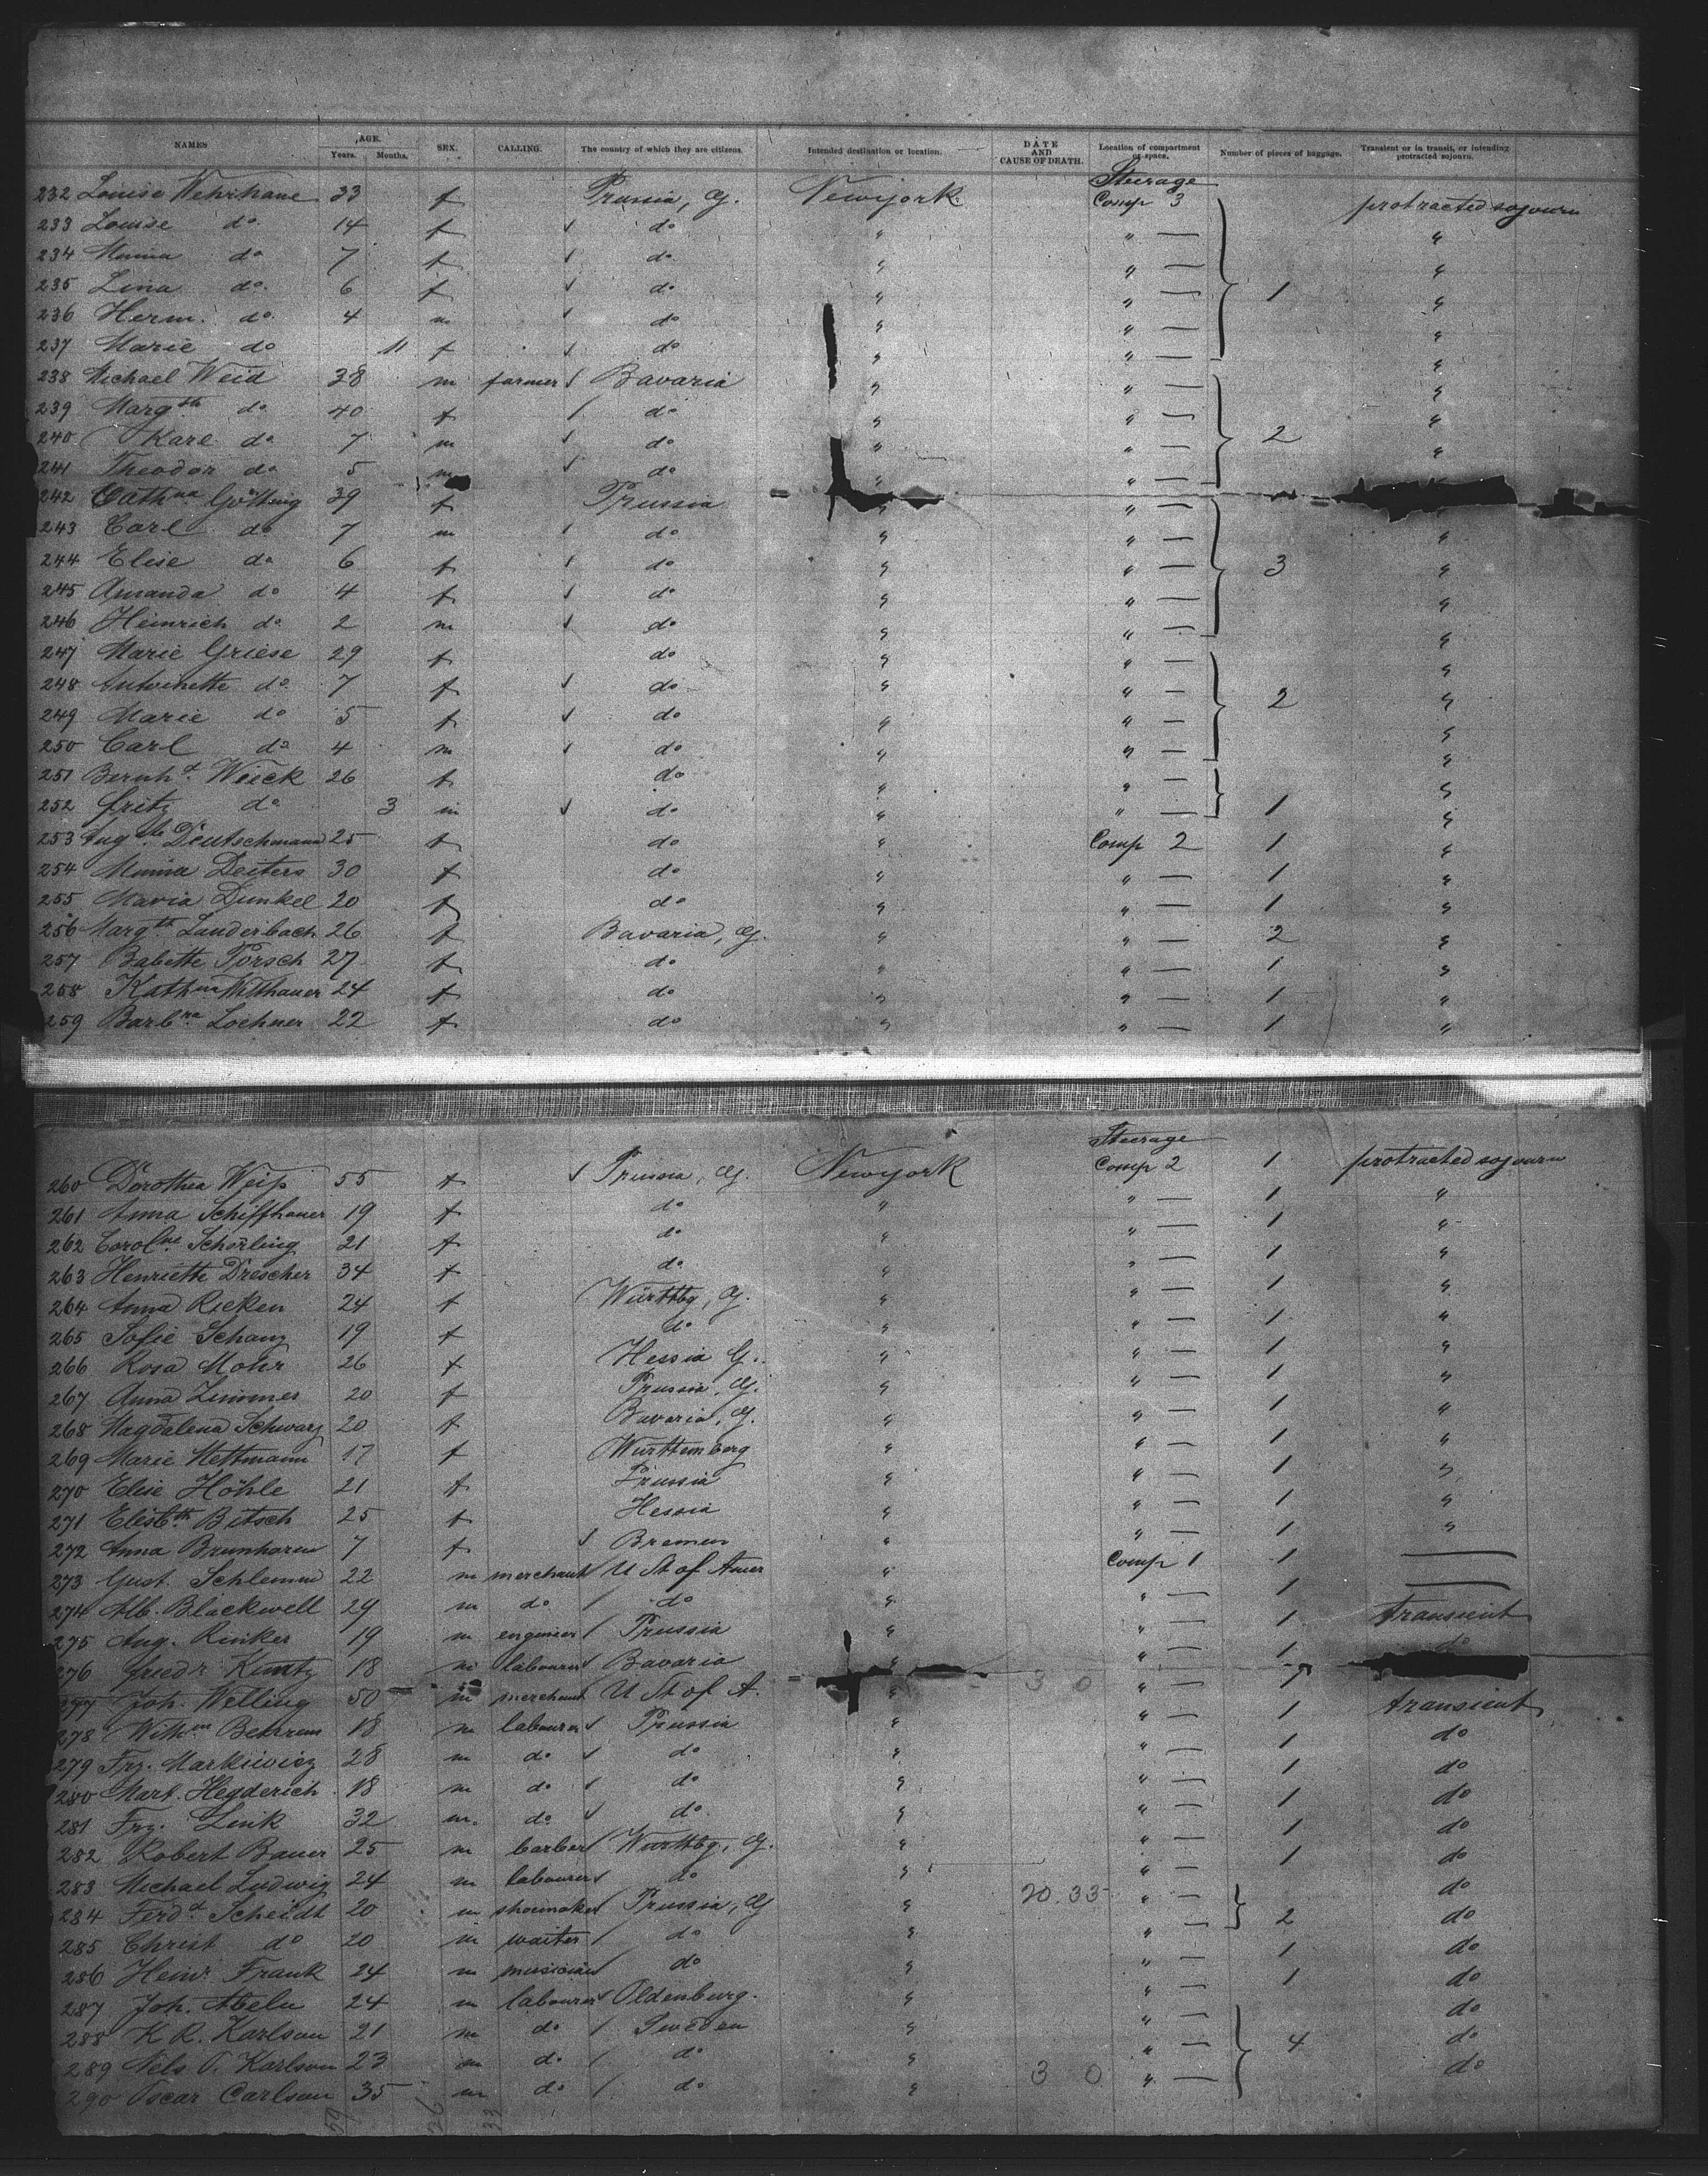 NAMES AGE. Years. Months. SEX. CALLING. The country of which they are citizens. Intended destination or location. DATE AND CAUSE OF DEATH. Location of compartment or space. Number of pieces of baggage. Transient or in transit, or intending protracted sojourn.
Steerage
232 Louise Wehrhane 33 f Prussia, Gy. Newyork. Comp 3 protracted sojourn
233 Louise do 14 f do " " — "
234 Minna do 7 f do " " — "
235 Lina do. 6 f do " " — 1 "
236 Herm. do 4 m do " " — "
237 Marie do 11 f do " " — "
238 Michael Weid 38 m farmer Bavaria " " — "
239 Marg.th do 40 f do " " — "
240 Karl do 7 m do " " — 2 "
241 Theodor do 5 m do " " —
242 Cath.na Götting 39 f Prussia " " — "
243 Carl do 7 m do " " — "
244 Elise do 6 f do " " — 3 "
245 Amanda do 4 f do " " — "
246 Heinrich do 2 m do " " — "
247 Marie Griese 29 f do " " — "
248 Antoinette do 7 f do " " — 2 "
249 Marie do 5 f do " " — "
250 Carl do 4 m do " " — "
251 Bernh.d Wieck 26 f do " " — "
252 Fritz do 3 m do " " — 1 "
253 Aug.te Deutschmann 25 f do " Comp 2 1 "
254 Minna Deiters 30 f do " " — 1 "
255 Maria Dunkel 20 f do " " — 1 "
256 Marg.th Lauderbach 26 f Bavaria, Gy. " " — 2 "
257 Babette Porsch 27 f do " " — 1 "
258 Kath.na Witthauer 24 f do " " — 1 "
259 Barb.ra Lochner 22 f do " " — 1 "
Steerage
260 Dorothea Weiß 55 f Prussia, Gy. Newyork Comp 2 1 protracted sojourn
261 Anna Schiffhauer 19 f do " " — 1 "
262 Carol.ne Schörling 21 f do " " — 1 "
263 Henriette Drescher 34 f do " " — 1 "
264 Anna Ricken 24 f Württbg, Gy. " " — 1 "
265 Sofie Schanz 19 f do " " — 1 "
266 Rosa Mohr 26 f Hessia G.. " " — 1 "
267 Anna Zimmer 20 f Prussia, Gy. " " — 1 "
268 Magdalena Schwarz 20 f Bavaria, Gy. " " — 1 "
269 Marie Mettmann 17 f Württemberg " " — 1 "
270 Elise Höhle 21 f Prussia " " — 1 "
271 Elisb.th Bitsch 25 f Hessia " " — 1 "
272 Anna Brunhoren 7 f Bremen " " — 1 "
273 Gust. Schlemm 22 m merchant U St of Amer " Comp 1 1 —
274 Alb. Blackwell 29 m do do " " — 1 —
275 Aug. Rinker 19 m engineer Prussia " " — 1 transient
276 Friedr Kuntz 18 m labourer Bavaria " " — 1 do
277 Joh. Welling 50 m merchant U St of A. " 3 0 " — 1
278 Wilh.m Behrens 18 m labourer Prussia " " — 1 transient
279 Frz. Markiewicz 28 m do do " " — 1 do
280 Mart. Hegderich 18 m do do " " — 1 do
281 Frz. Link 32 m do do " " — 1 do
282 Robert Bauer 25 m barber Württbg, Gy. " " — 1 do
283 Michael Ludwig 24 m labourer do " " — 1 do
284 Ferd.d Scheidt 20 m shoemaker Prussia, Gy " 20.33 " — do
285 Christ do 20 m waiter do " " — 2 do
286 Heinr. Frank 24 m musician do " " — 1 do
287 Joh. Abeln 24 m labourer Oldenburg. " " — 1 do
288 K R. Karlson 21 m do Sweden " " — do
289 Nels O. Karlson 23 m do do " " — 4 do
290 Oscar Carlson 35 m do do " 3 0 " — do
59 26 33